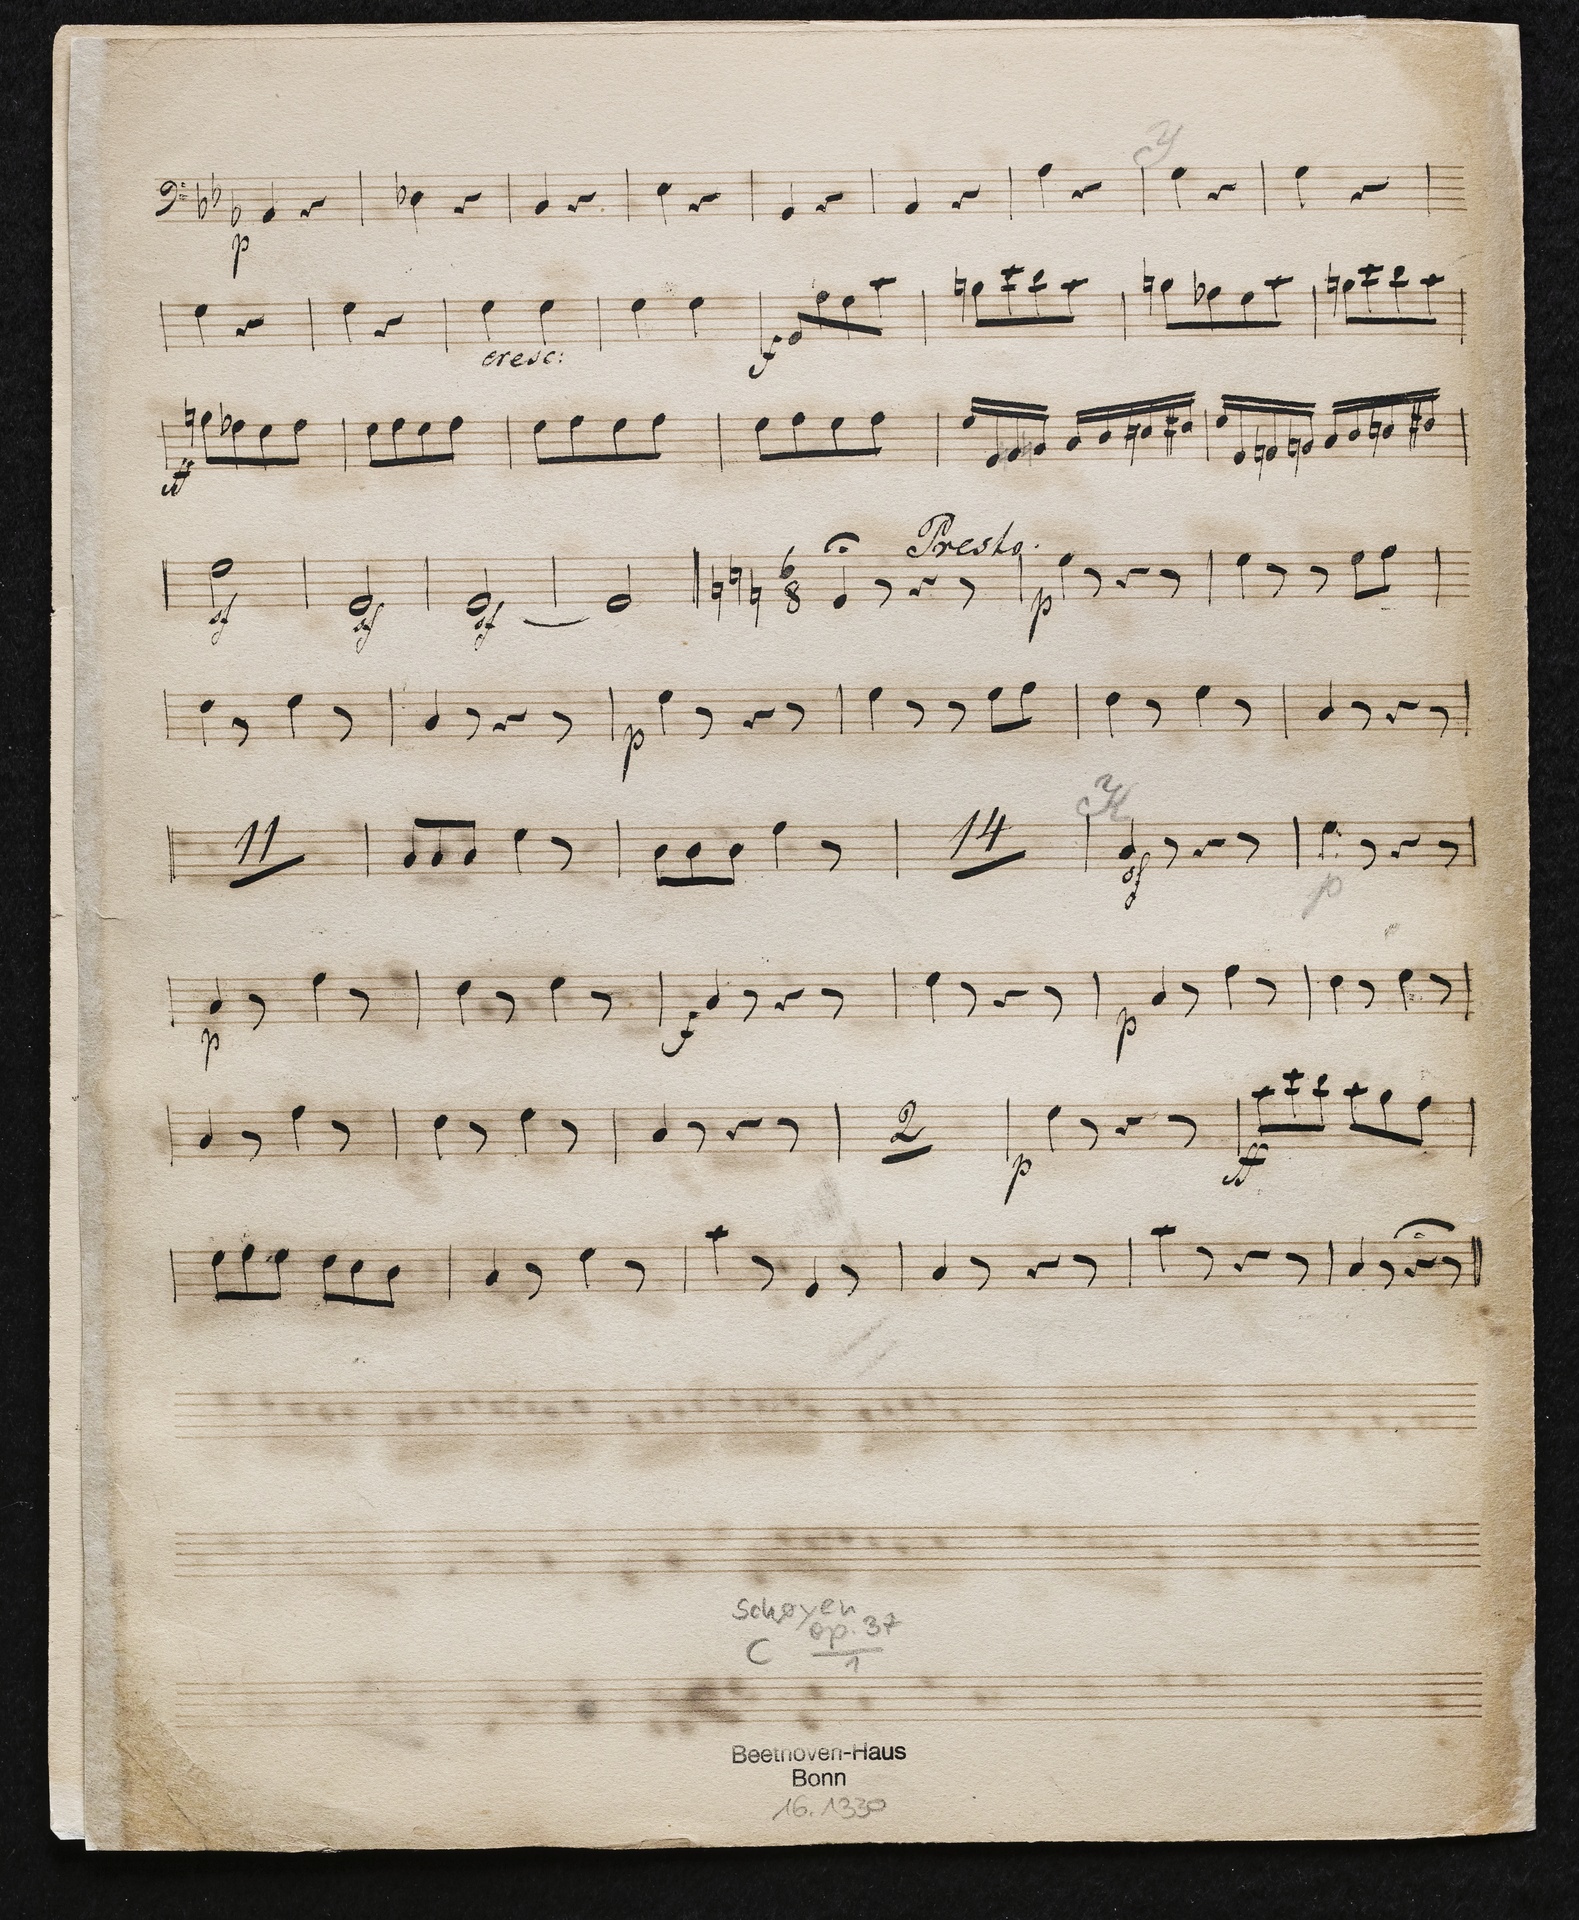 p
cresc:
f
ff
sf sf sf
6
8
Presto.
p
p
11
14
sf
p
p
f
p
2
p
ff
Schøyen
op. 37
C
1
Beethoven-Haus
Bonn
16. 1330